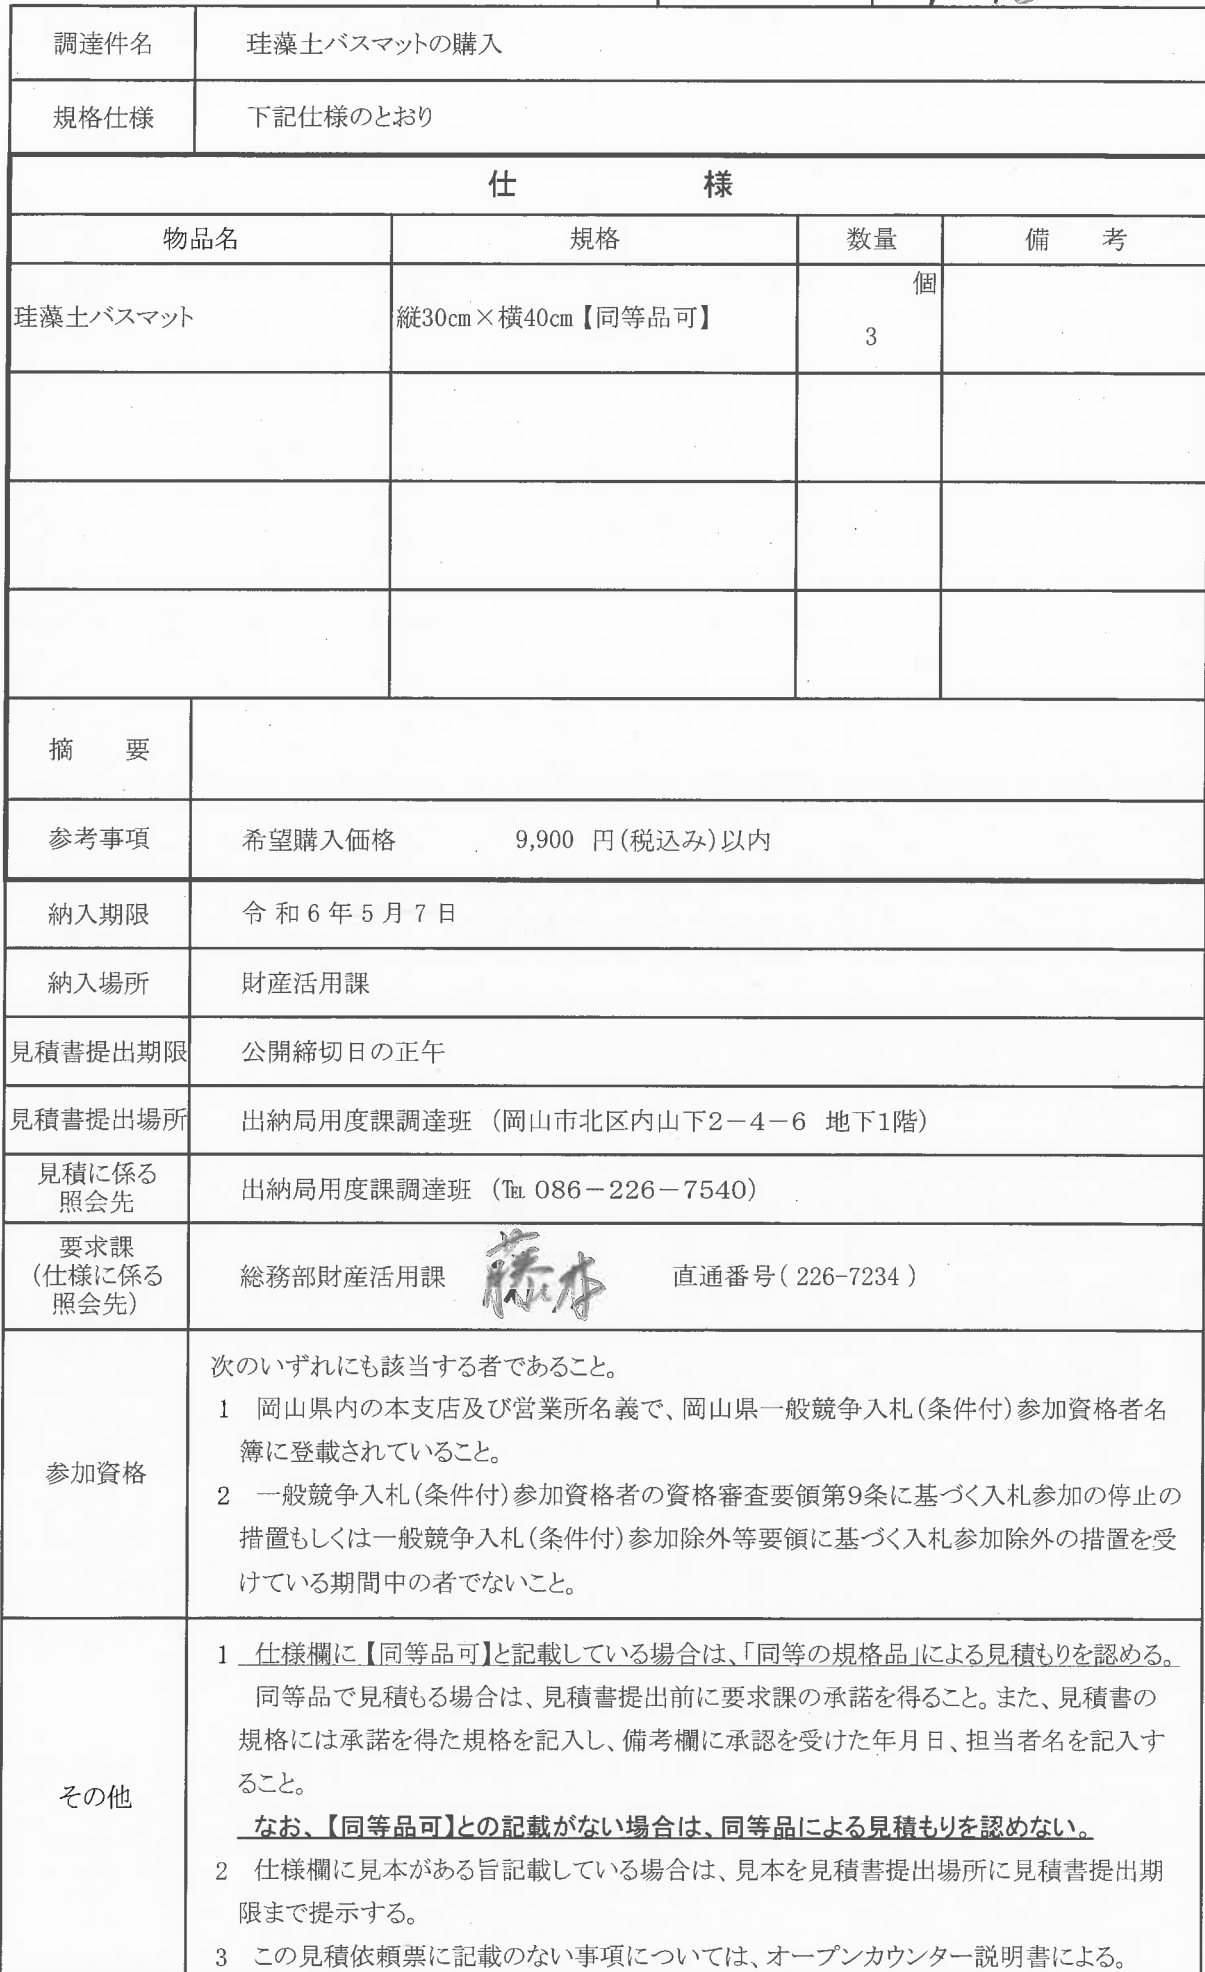 調達件名 珪藻土バスマットの購入
規格仕様 下記仕様のとおり
仕 様
物品名 規格 数量 備 考
個
珪藻土バスマット 縦30㎝×横40㎝【同等品可】 3
摘 要
参考事項 希望購入価格 9,900 円(税込み)以内
納入期限 令和6年5月7日
納入場所 財産活用課
見積書提出期限 公開締切日の正午
見積書提出場所 出納局用度課調達班 (岡山市北区内山下2-4-6 地下1階)
見積に係る
照会先 出納局用度課調達班 (℡ 086-226-7540)
要求課
(仕様に係る
照会先) 総務部財産活用課 藤本 直通番号( 226-7234 )
参加資格
次のいずれにも該当する者であること。
1 岡山県内の本支店及び営業所名義で、岡山県一般競争入札(条件付)参加資格者名
簿に登載されていること。
2 一般競争入札(条件付)参加資格者の資格審査要領第9条に基づく入札参加の停止の
措置もしくは一般競争入札(条件付)参加除外等要領に基づく入札参加除外の措置を受
けている期間中の者でないこと。
その他
1 仕様欄に【同等品可】と記載している場合は、「同等の規格品」による見積もりを認める。
同等品で見積もる場合は、見積書提出前に要求課の承諾を得ること。また、見積書の
規格には承諾を得た規格を記入し、備考欄に承認を受けた年月日、担当者名を記入す
ること。
なお、【同等品可】との記載がない場合は、同等品による見積もりを認めない。
2 仕様欄に見本がある旨記載している場合は、見本を見積書提出場所に見積書提出期
限まで提示する。
3 この見積依頼票に記載のない事項については、オープンカウンター説明書による。